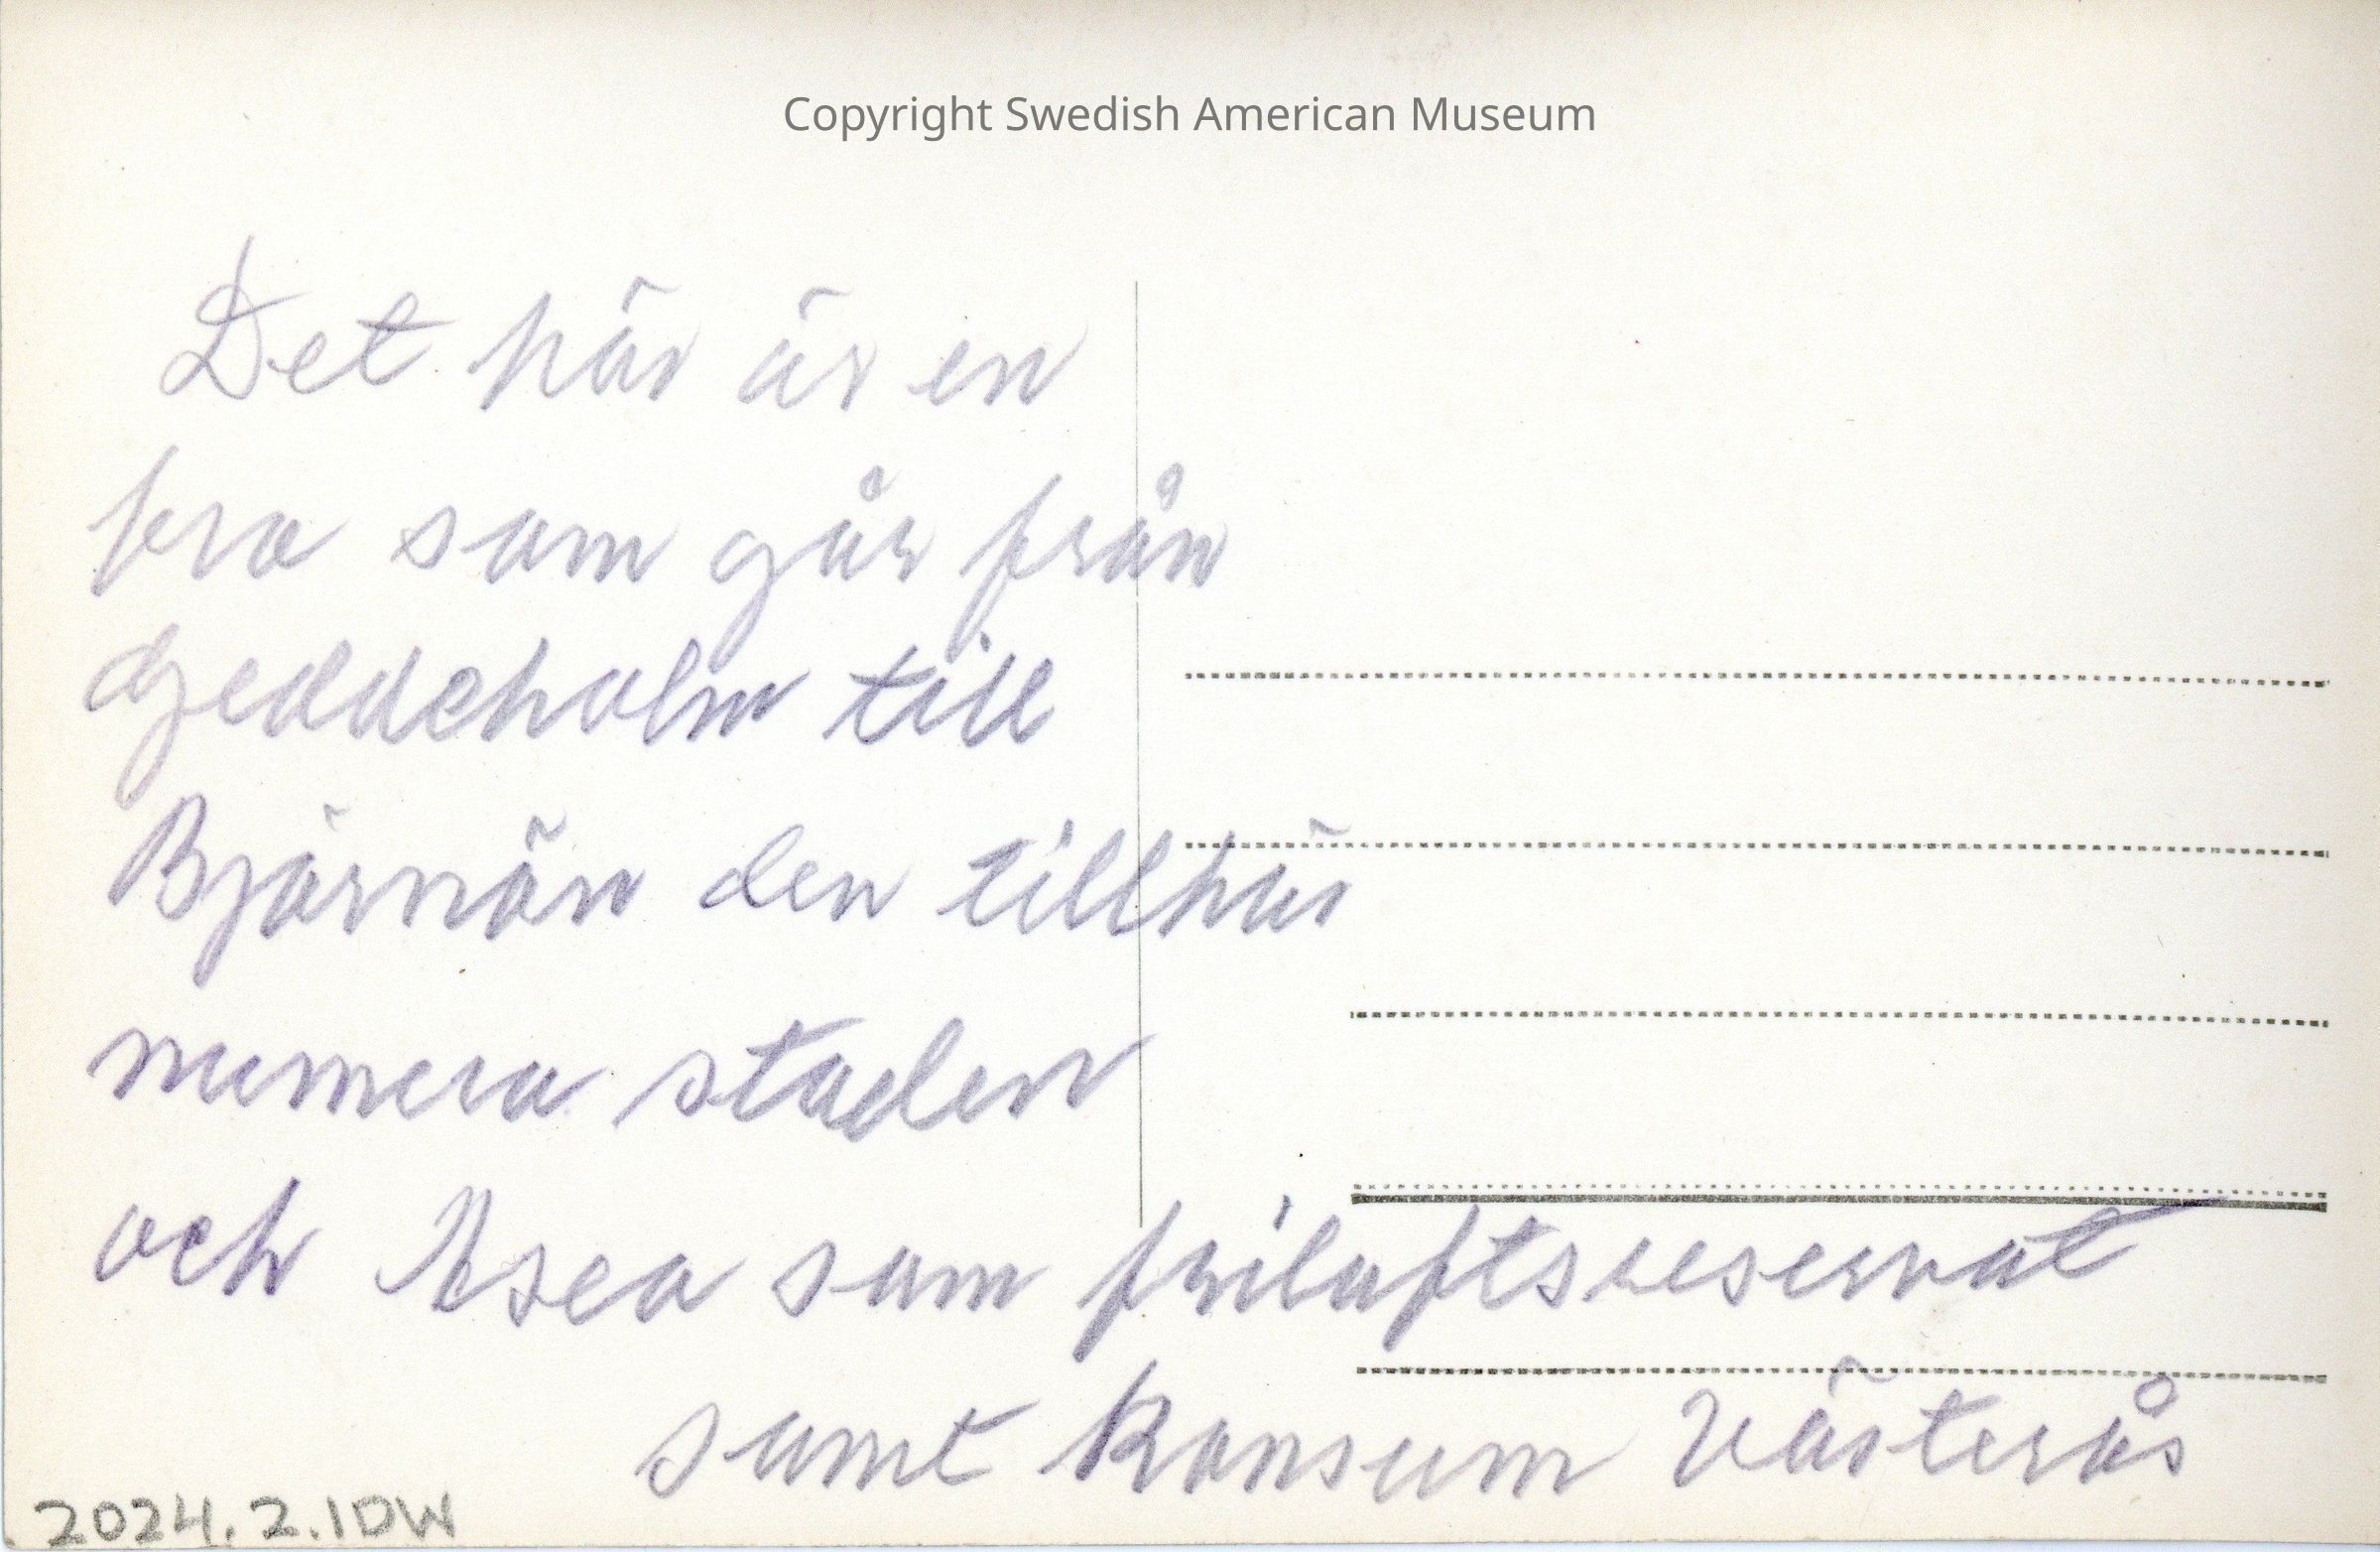 Copyright Swedish American Museum
Det här är en
bro som går från
Geddeholm till
Björnön den tillhör
numera staden
och Asea som friluftsreservat
samt Konsum Västerås
2024.2.1DW